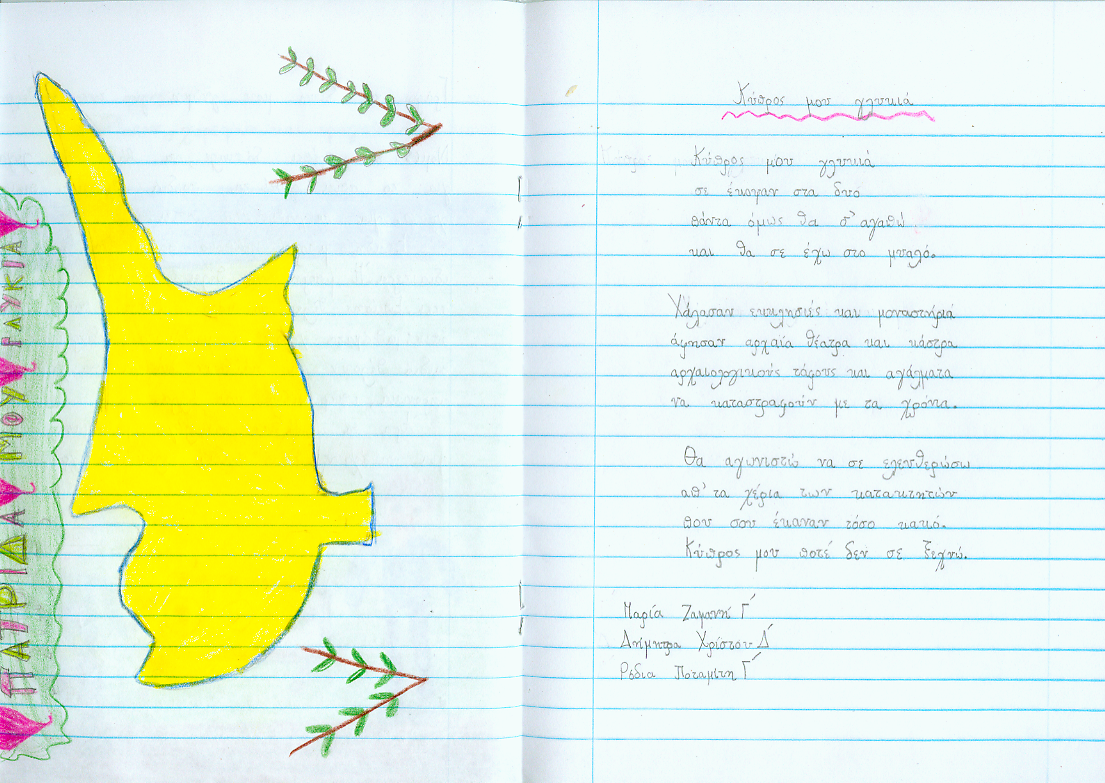 ΠΑΤΡΙΔΑ ΜΟΥ ΓΛΥΚΙΑ
Κύπρος μου γλυκιά
Κύπρος μου γλυκιά
σε έκοψαν στα δυο
πάντα όμως θα σ' αγαπώ
και θα σε έχω στο μυαλό.
Χάλασαν εκκλησιές και μοναστήρια
άφησαν αρχαία θέατρα και κάστρα
αρχαιολογικούς τάφους και αγάλματα
να καταστραφούν με τα χρόνια.
Θα αγωνιστώ να σε ελευθερώσω
απ' τα χέρια των κατακτητών
που σου έκαναν τόσο κακό.
Κύπρος μου ποτέ δεν σε ξεχνώ.
Μαρία Ζαμανή Γ΄
Δήμητρα Χρίστου Δ΄
Ρέδια Ποταμίτη Γ΄